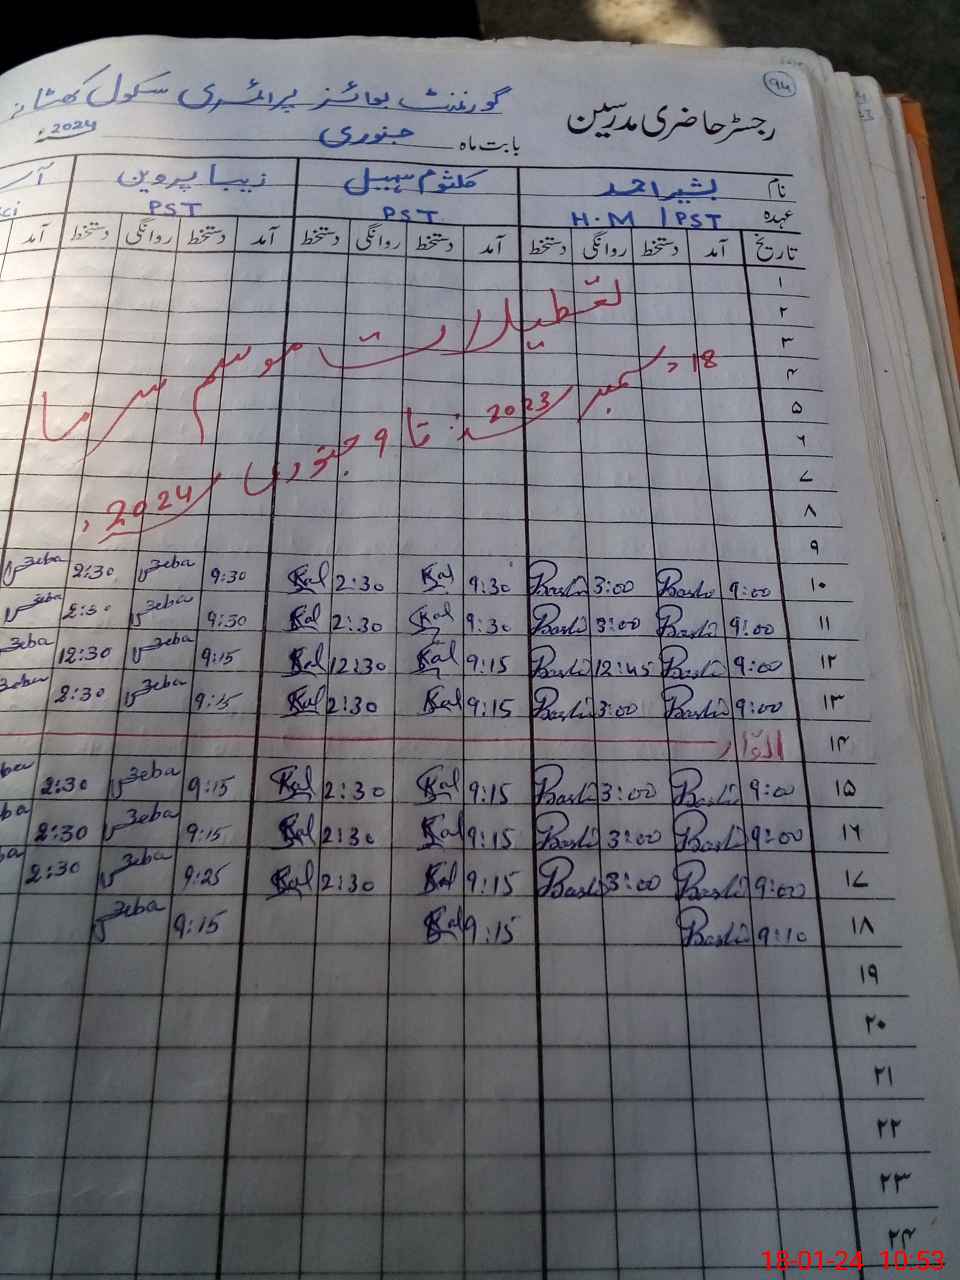 94
رجسٹر حاضری مدرسین گورنمنٹ بوائز پرائمری سکول
بابت ماہ جنوری 2024ء
نام بشیر احمد کلثوم سہیل زیبا پروین
عہدہ H.M / PST PST PST
تاریخ آمد دستخط روانگی دستخط آمد دستخط روانگی دستخط آمد دستخط روانگی دستخط آمد
۱
۲
۳
۴
۵
۶
۷
۸
۹
تعطیلات موسم سرما
18 دسمبر 2023ء تا 9 جنوری 2024ء
۱۰ 9:00 Bashir 3:00 Bashir 9:30 Kal 2:30 Kal 9:30 Zeba 2:30 Zeba
۱۱ 9:00 Bashir 3:00 Bashir 9:30 Kal 2:30 Kal 9:30 Zeba 2:30 Zeba
۱۲ 9:00 Bashir 12:45 Bashir 9:15 Kal 12:30 Kal 9:15 Zeba 12:30 Zeba
۱۳ 9:00 Bashir 3:00 Bashir 9:15 Kal 2:30 Kal 9:15 Zeba 2:30 Zeba
۱۴ اتوار
۱۵ 9:00 Bashir 3:00 Bashir 9:15 Kal 2:30 Kal 9:15 Zeba 2:30 Zeba
۱۶ 9:00 Bashir 3:00 Bashir 9:15 Kal 2:30 Kal 9:15 Zeba 2:30 Zeba
۱۷ 9:00 Bashir 3:00 Bashir 9:15 Kal 2:30 Kal 9:25 Zeba 2:30 Zeba
۱۸ 9:10 Bashir 9:15 Kal 9:15 Zeba
۱۹
۲۰
۲۱
۲۲
۲۳
۲۴
18-01-24 10:53